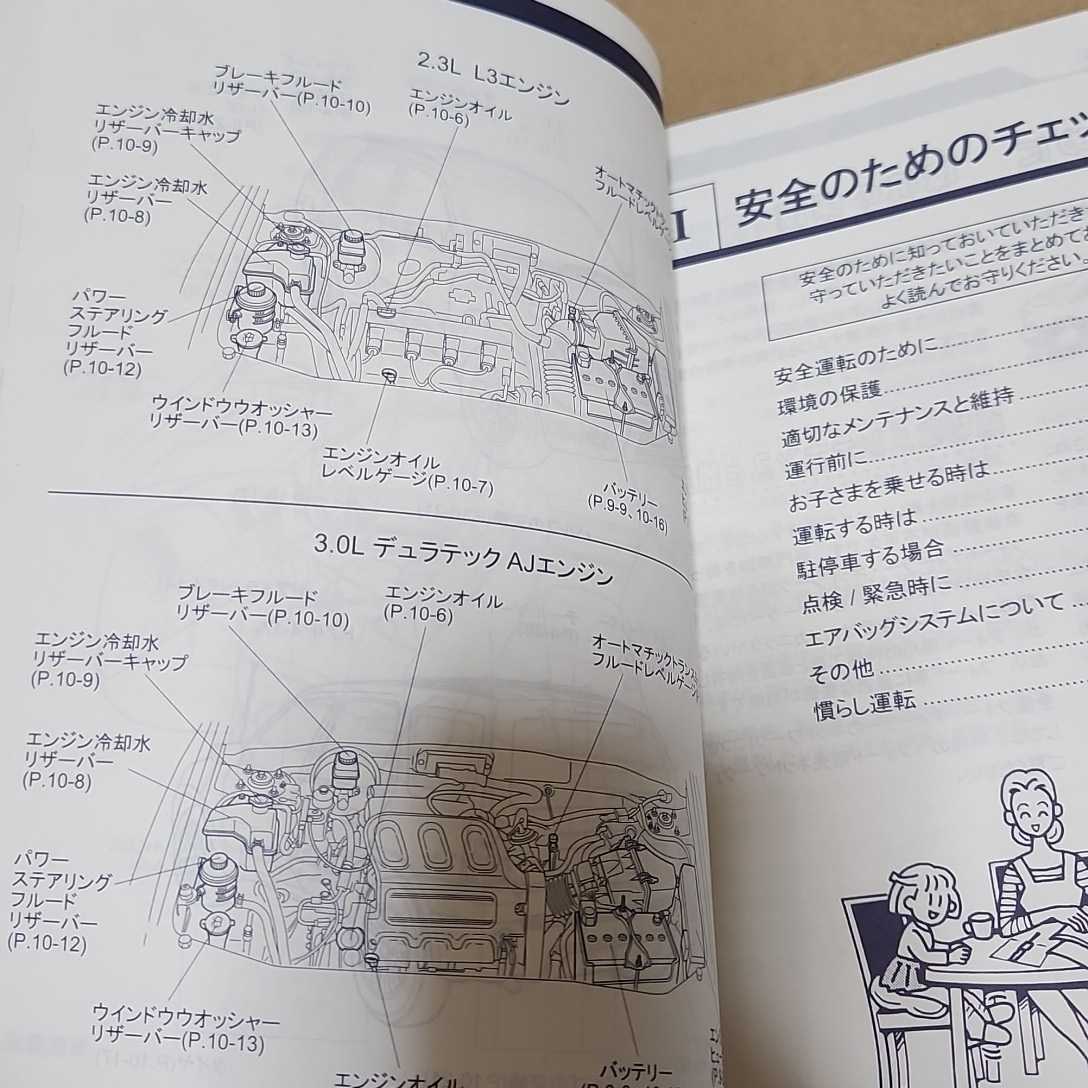 2.3L L3エンジン
ブレーキフルード
リザーバー(P.10-10)
エンジンオイル
(P.10-6)
エンジン冷却水
リザーバーキャップ
(P.10-9)
エンジン冷却水
リザーバー
(P.10-8)
パワー
ステアリング
フルード
リザーバー
(P.10-12)
ウインドウウオッシャー
リザーバー(P.10-13)
エンジンオイル
レベルゲージ(P.10-7)
バッテリー
(P.9-9、10-16)
3.0L デュラテック AJエンジン
ブレーキフルード
リザーバー(P.10-10)
エンジンオイル
(P.10-6)
オートマチックトランス
フルードレベルゲージ
エンジン冷却水
リザーバーキャップ
(P.10-9)
エンジン冷却水
リザーバー
(P.10-8)
パワー
ステアリング
フルード
リザーバー
(P.10-12)
ウインドウウオッシャー
リザーバー(P.10-13)
エンジンオイル
バッテリー
安全のためのチェッ
安全のために知っておいていただき
守っていただきたいことをまとめてお
よく読んでお守りください。
安全運転のために
環境の保護
適切なメンテナンスと維持
運行前に
お子さまを乗せる時は
運転する時は
駐停車する場合
点検 / 緊急時に
エアバッグシステムについて
その他
慣らし運転